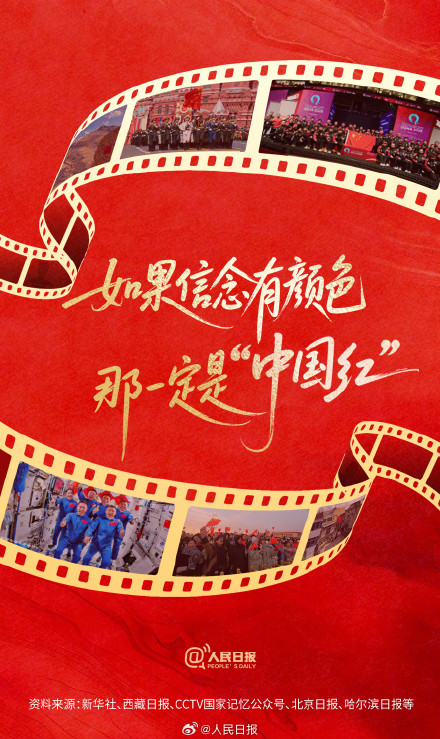 如果信念有颜色
那一定是“中国红”
@人民日报
PEOPLE'S DAILY
资料来源:新华社、西藏日报、CCTV国家记忆公众号、北京日报、哈尔滨日报等
@人民日报